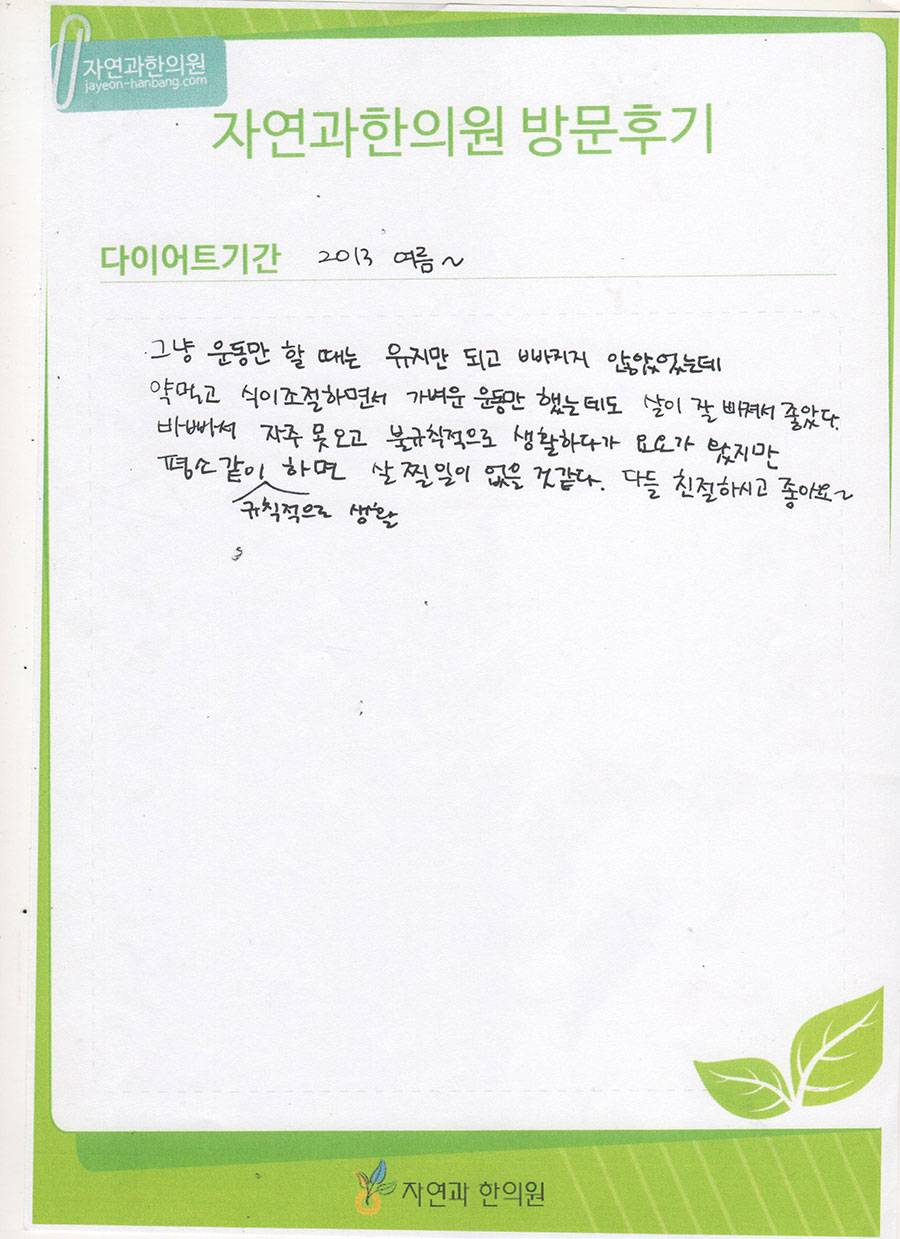 자연과한의원
jayeon-hanbang.com
자연과한의원 방문후기
다이어트기간 2013 여름~
그냥 운동만 할 때는 유지만 되고 빠지지 않았었는데
약먹고 식이조절하면서 가벼운 운동만 했는데도 살이 잘 빠져서 좋았다.
바빠서 자주 못오고 불규칙적으로 생활하다가 요요가 왔지만
평소같이 하면 살찔일이 없을 것같다. 다들 친절하시고 좋아요~
규칙적으로 생활
자연과 한의원